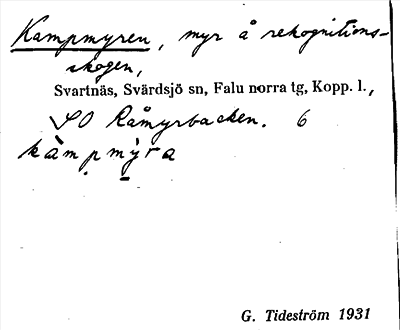 Kampmyren, myr å rekognitions-
skogen,
Svartnäs, Svärdsjö sn, Falu norra tg, Kopp. l.,
SO Råmyrbacken. 6
kàmpmỳra
G. Tideström 1931